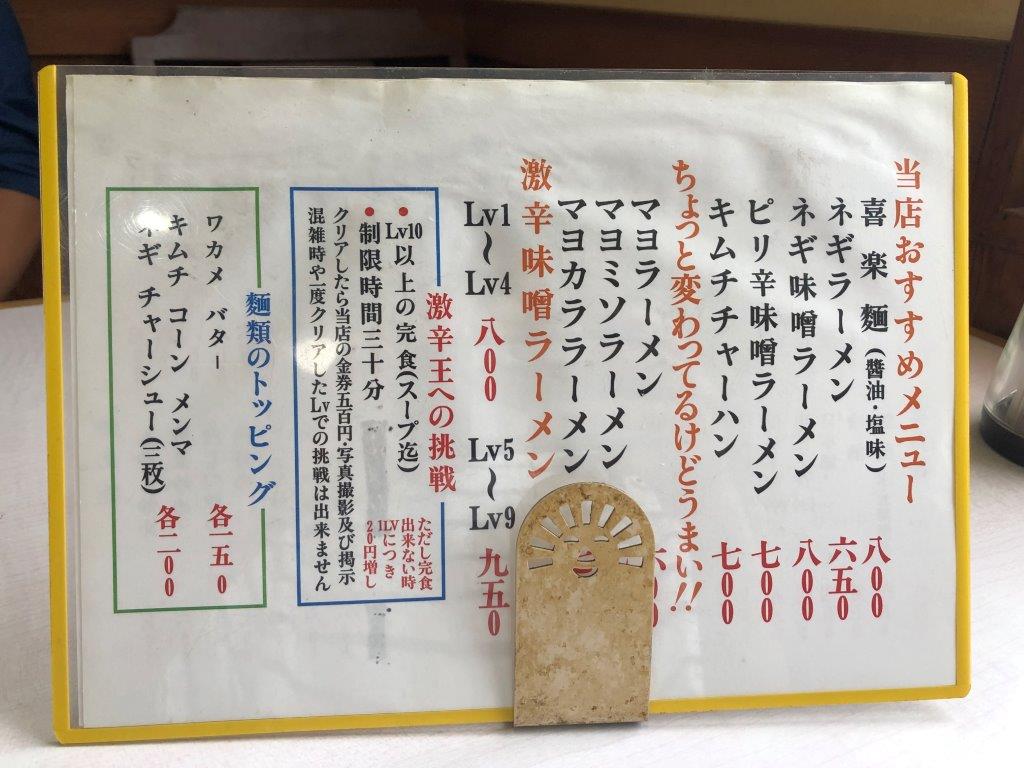 当店おすすめメニュー
喜楽麵(醬油・塩味) 八00
ネギラーメン 六五0
ネギ味噌ラーメン 八00
ピリ辛味噌ラーメン 七00
キムチチャーハン 七00
ちょっと変わってるけどうまい!!
マヨラーメン
マヨミソラーメン
マヨカララーメン
激辛味噌ラーメン
Lv1〜Lv4 八00 Lv5〜Lv9 九五0
激辛王への挑戦
● Lv10以上の完食(スープ迄)
● 制限時間三十分
クリアしたら当店の金券五百円・写真撮影及び掲示
混雑時や一度クリアしたLvでの挑戦は出来ません
ただし完食
出来ない時
1LVにつき
20円増し
麵類のトッピング
ワカメ バター 各一五0
キムチ コーン メンマ
ネギ チャーシュー(三枚) 各二00